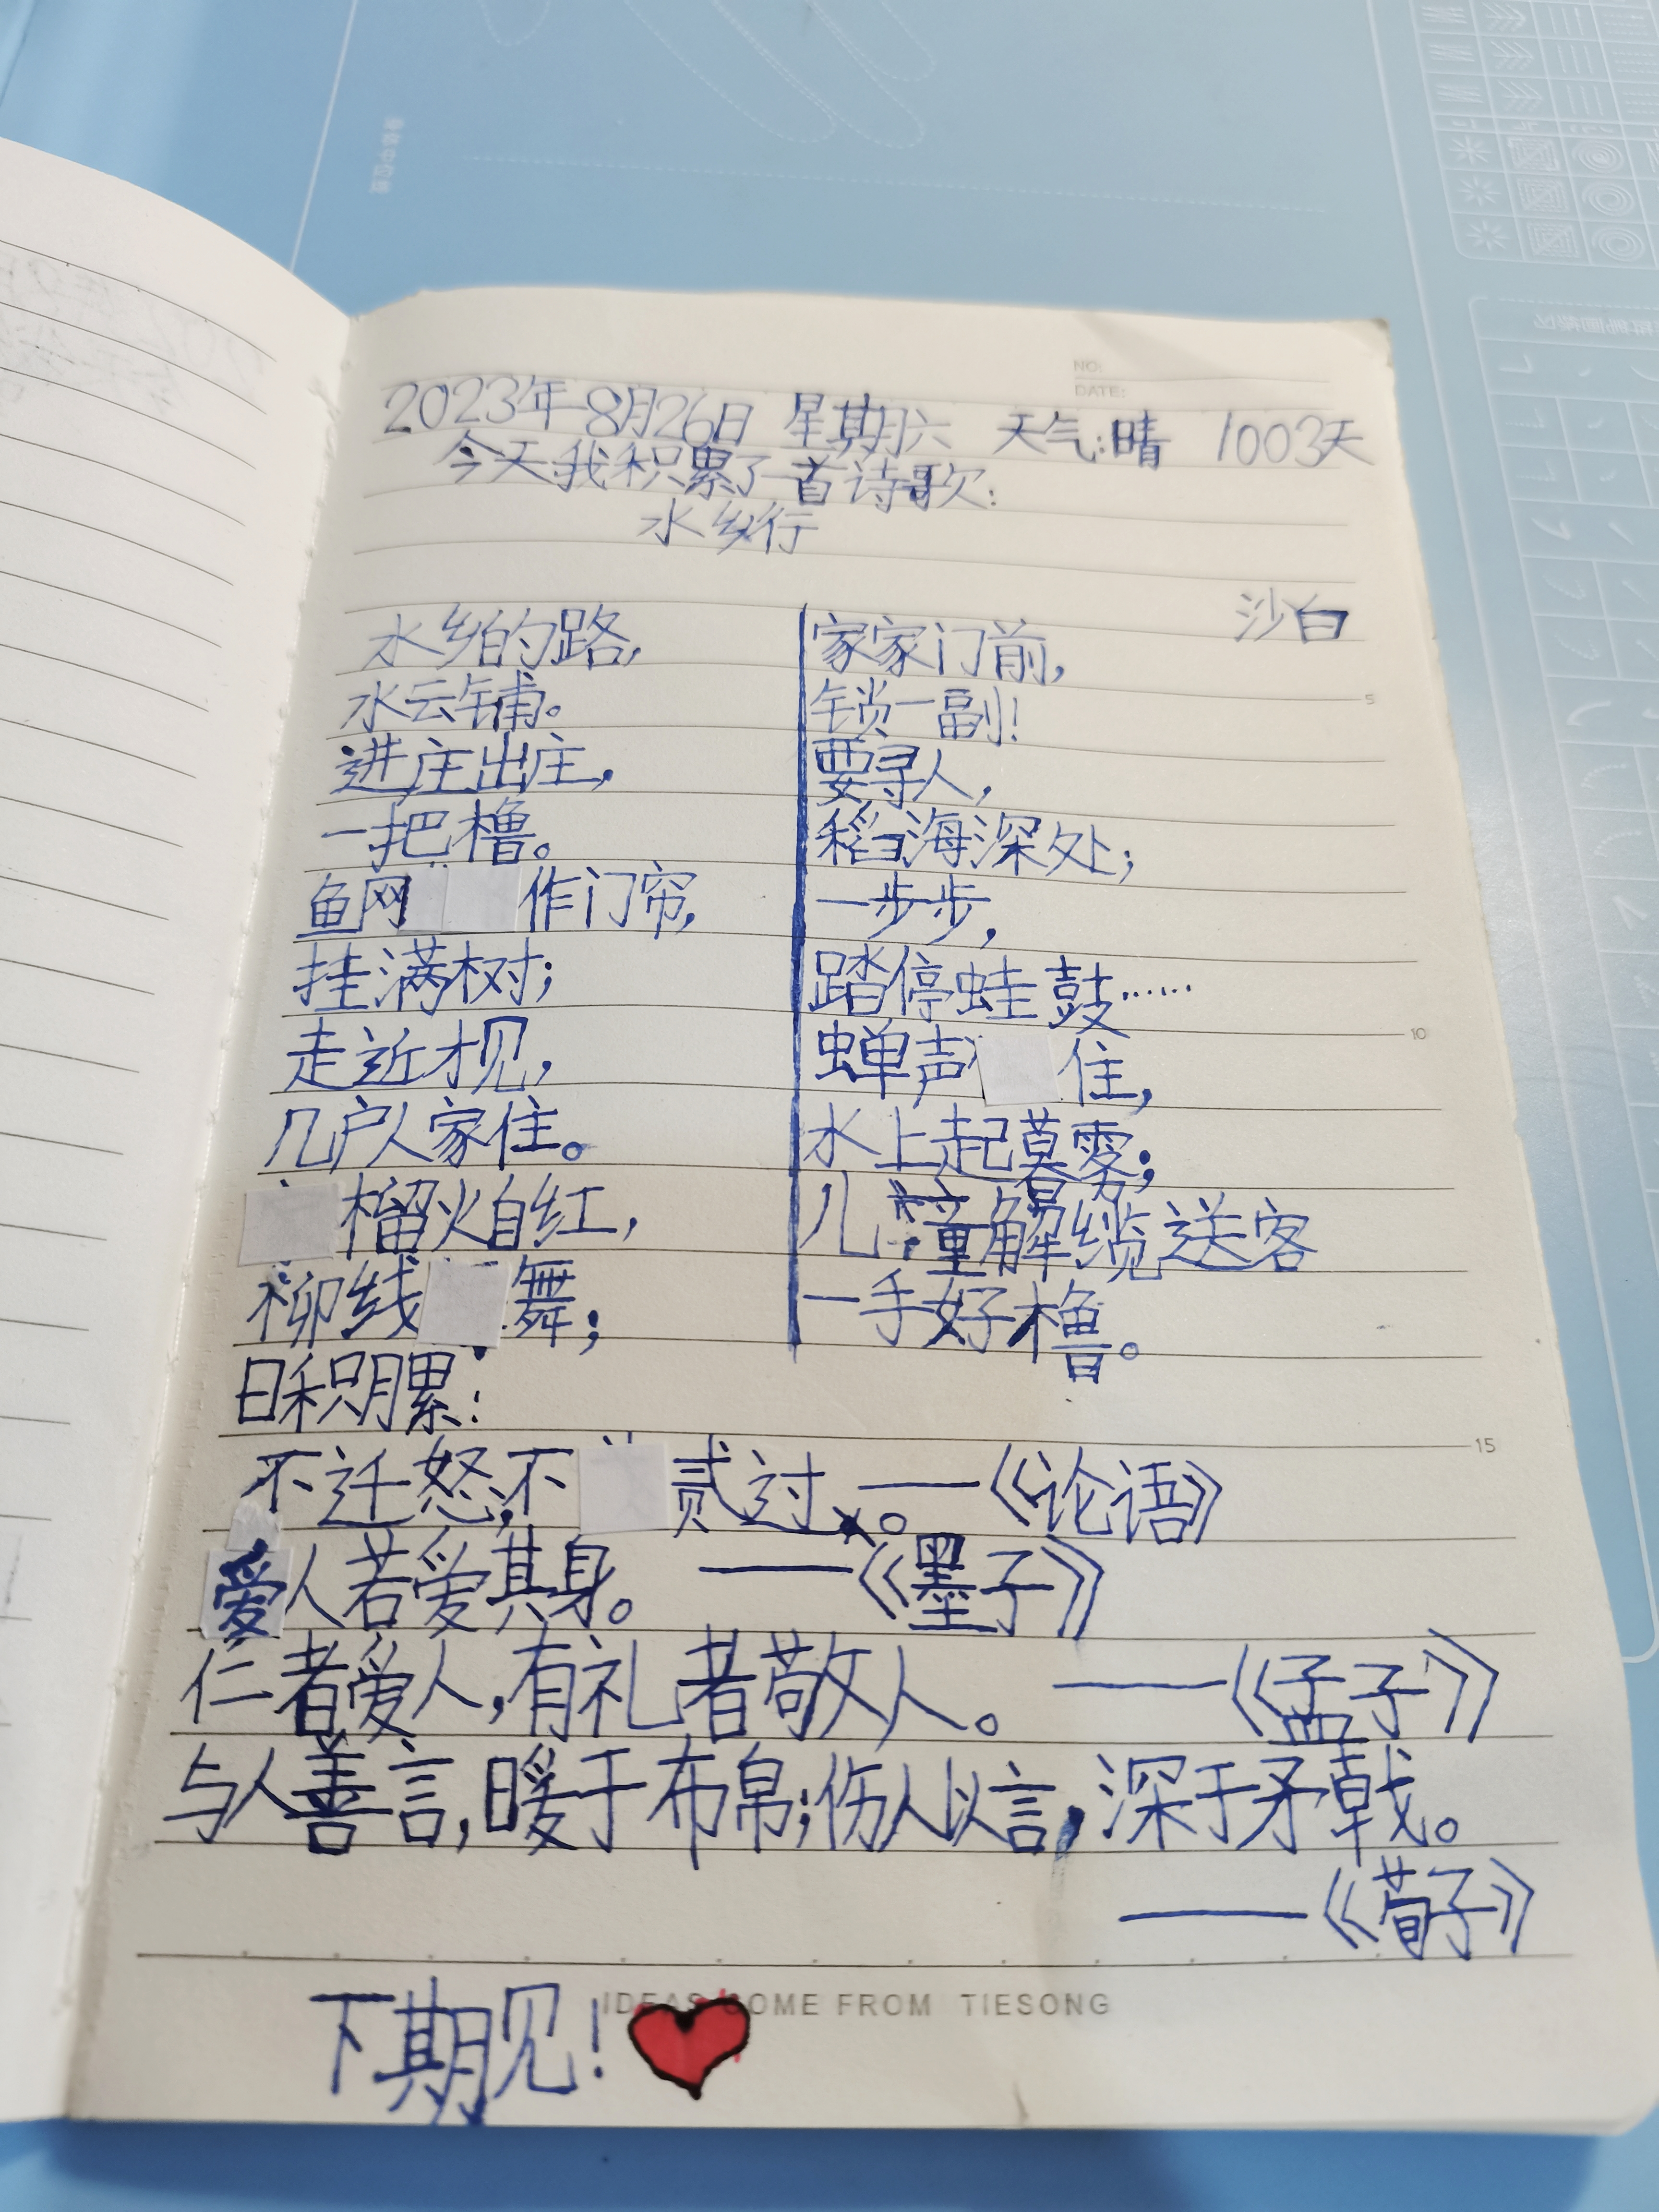 NO:
DATE:
2023年8月26日 星期六 天气:晴 1003天
今天我积累了一首诗歌:
水乡行
沙白
水乡的路,
水云铺。
进庄出庄,
一把橹。
鱼网作门帘,
挂满树;
走近才见,
几户人家住。
榴火自红,
柳线舞;
家家门前,
锁一副!
要寻人,
稻海深处;
一步步,
踏停蛙鼓……
蝉声住,
水上起暮雾;
儿童解缆送客
一手好橹。
日积月累:
不迁怒,不贰过。——《论语》
爱人若爱其身。——《墨子》
仁者爱人,有礼者敬人。——《孟子》
与人善言,暖于布帛;伤人以言,深于矛戟。
——《荀子》
5
10
15
IDEAS COME FROM TIESONG
下期见!